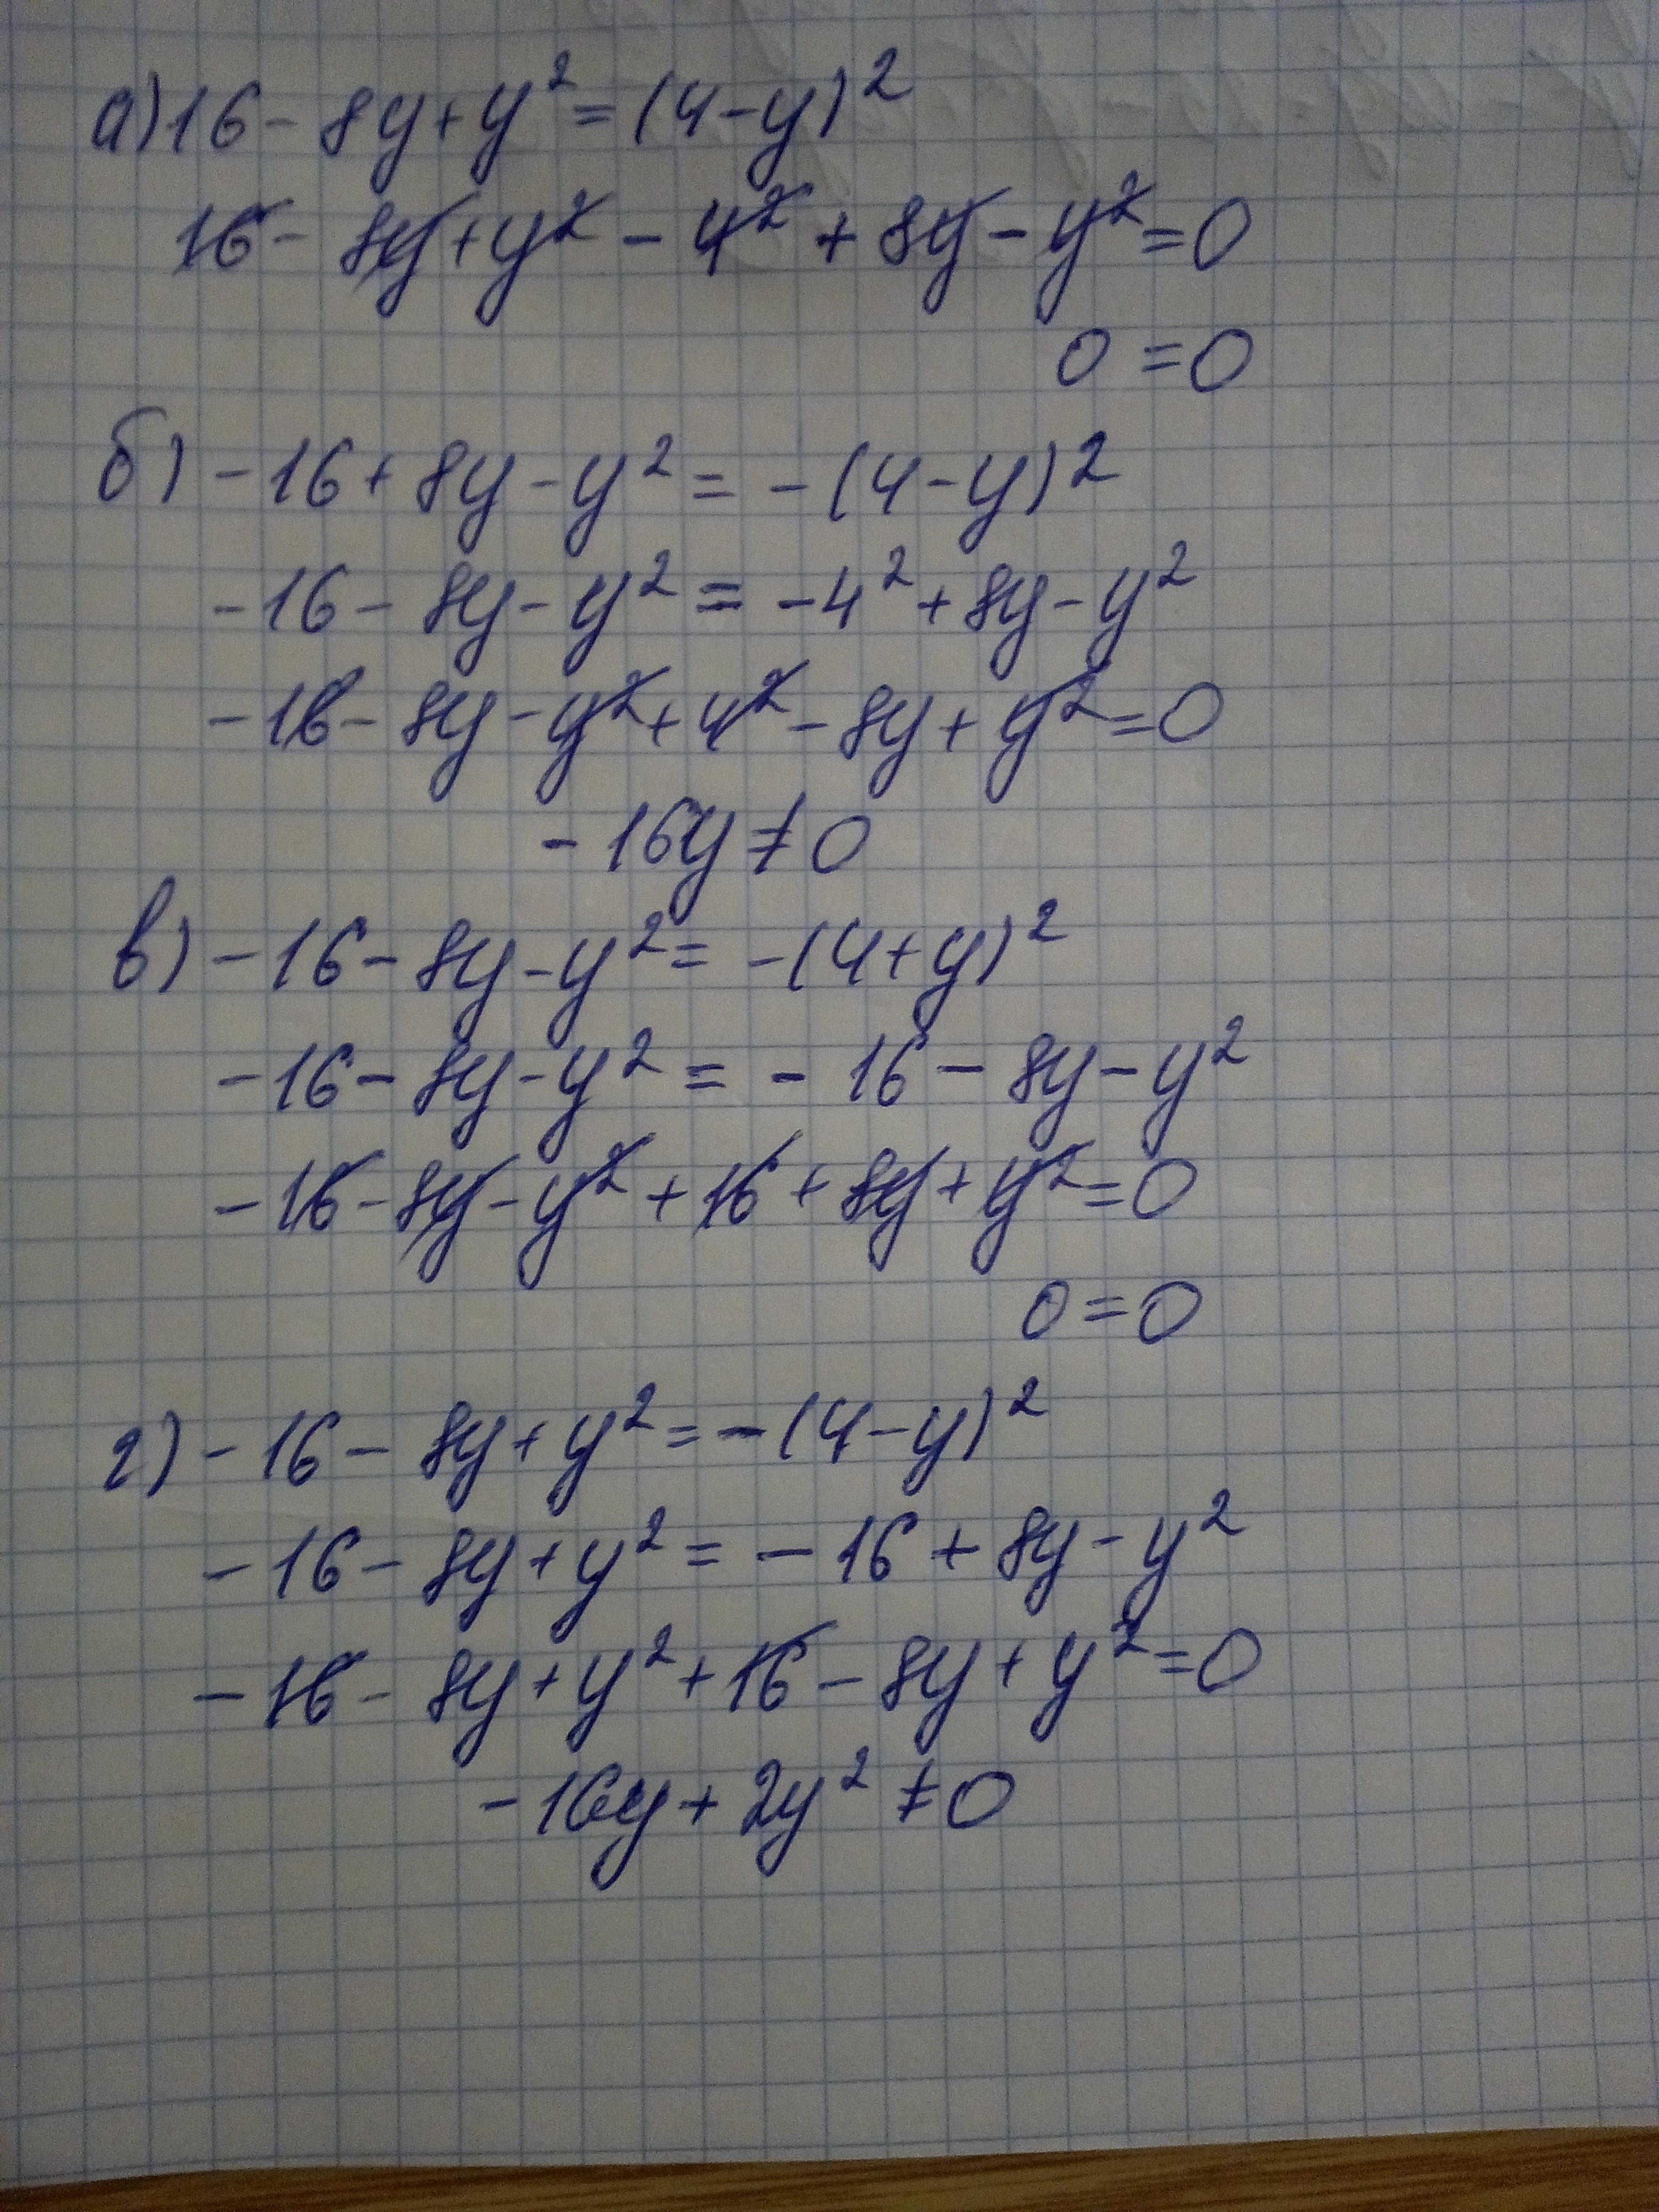 а) 16 - 8y + y² = (4 - y)²
16 - 8y + y² - 4² + 8y - y² = 0
0 = 0
б) - 16 + 8y - y² = - (4 - y)²
- 16 - 8y - y² = - 4² + 8y - y²
- 16 - 8y - y² + 4² - 8y + y² = 0
- 16y ≠ 0
в) - 16 - 8y - y² = - (4 + y)²
- 16 - 8y - y² = - 16 - 8y - y²
- 16 - 8y - y² + 16 + 8y + y² = 0
0 = 0
г) - 16 - 8y + y² = - (4 - y)²
- 16 - 8y + y² = - 16 + 8y - y²
- 16 - 8y + y² + 16 - 8y + y² = 0
- 16y + 2y² ≠ 0